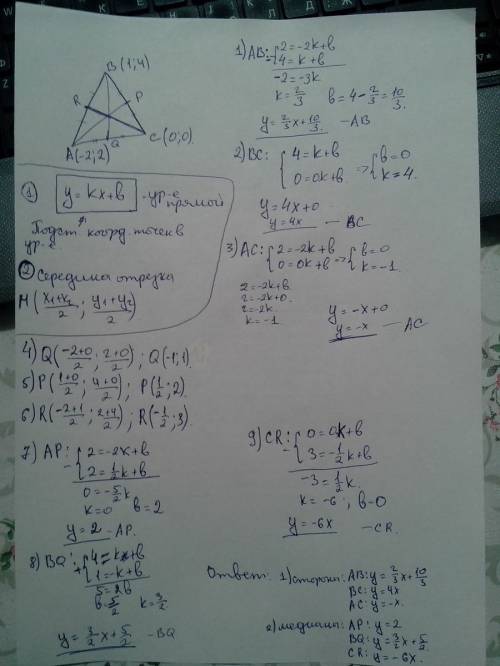 B(1;4)
R
P
A(-2;2)
Q
C(0;0)
① y = kx+b - ур-е прямой
Подст. коорд. точек в
ур-е
② Середина отрезка
M(x₁+x₂/2 ; y₁+y₂/2)
1) AB: - { 2=-2k+b
4=k+b
-2=-3k
k=2/3 b=4-2/3=10/3.
y=2/3x+10/3. - AB
2) BC: { 4=k+b
0=0k+b => { b=0
k=4.
y=4x+0
y=4x - BC
3) AC: { 2=-2k+b
0=0k+b => { b=0
k=-1.
2=-2k+b.
2=-2k+0.
2=-2k.
k=-1
y=-x+0
y=-x - AC
4) Q(-2+0/2 ; 2+0/2) ; Q(-1;1).
5) P(1+0/2 ; 4+0/2) ; P(1/2 ; 2).
6) R(-2+1/2 ; 2+4/2) ; R(-1/2 ; 3).
7) AP: - { 2=-2k+b
2=1/2k+b
0=-5/2k
k=0 b=2
y=2 - AP.
8) BQ: + { 4=k+b
1=-k+b
5=2b
b=5/2 k=3/2
y=3/2x+5/2 - BQ
9) CR: - { 0=0k+b
3=-1/2k+b
-3=1/2k.
k=-6 ; b=0
y=-6x - CR.
Ответ: 1) стороны: AB: y=2/3x+10/3
BC: y=4x
AC: y=-x.
2) медианы: AP: y=2
BQ: y=3/2x+5/2.
CR: y=-6x.